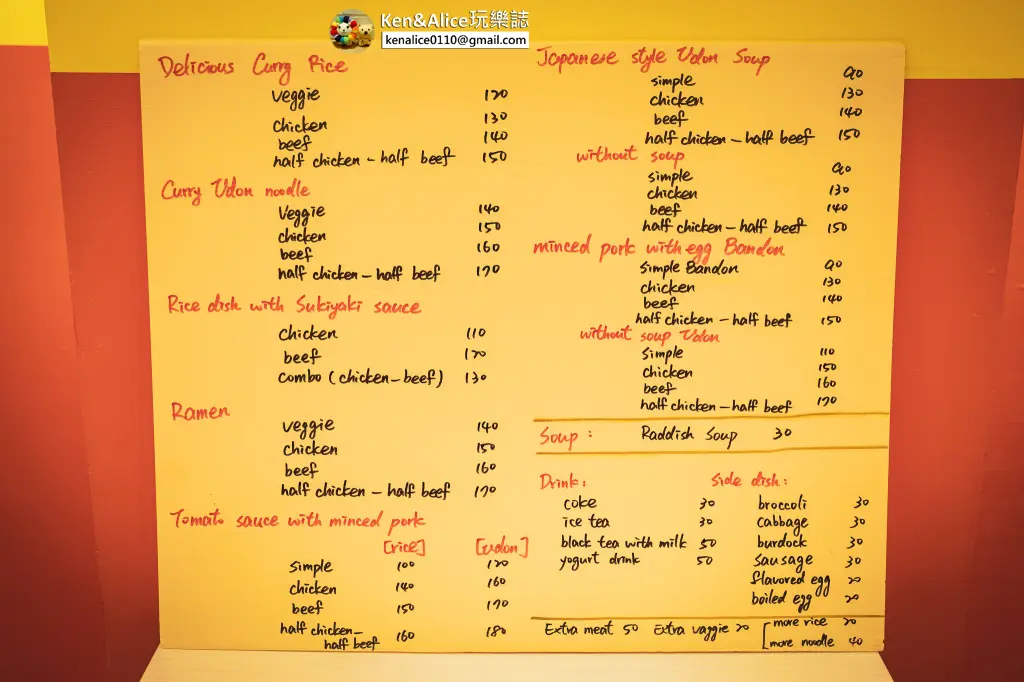 Ken&Alice玩樂誌
kenalice0110@gmail.com
Delicious Curry Rice
veggie 120
chicken 130
beef 140
half chicken - half beef 150
Curry Udon noodle
Veggie 140
chicken 150
beef 160
half chicken - half beef 170
Rice dish with Sukiyaki sauce
chicken 110
beef 120
combo (chicken-beef) 130
Ramen
veggie 140
chicken 150
beef 160
half chicken - half beef 170
Tomato sauce with minced pork
[rice] [udon]
simple 100 120
chicken 140 160
beef 150 170
half chicken- 
half beef 160 180
Japanese style Udon Soup
simple 90
chicken 130
beef 140
half chicken - half beef 150
without soup
simple 90
chicken 130
beef 140
half chicken - half beef 150
minced pork with egg Bandon
simple Bandon 90
chicken 130
beef 140
half chicken - half beef 150
without soup Udon
simple 110
chicken 150
beef 160
half chicken - half beef 170
Soup : Raddish Soup 30
Drink:
coke 30
ice tea 30
black tea with milk 50
yogurt drink 50
Side dish:
broccoli 30
cabbage 30
burdock 30
sausage 30
flavored egg 20
boiled egg 20
Extra meat 50 Extra vaggie 20
more rice 20
more noodle 40